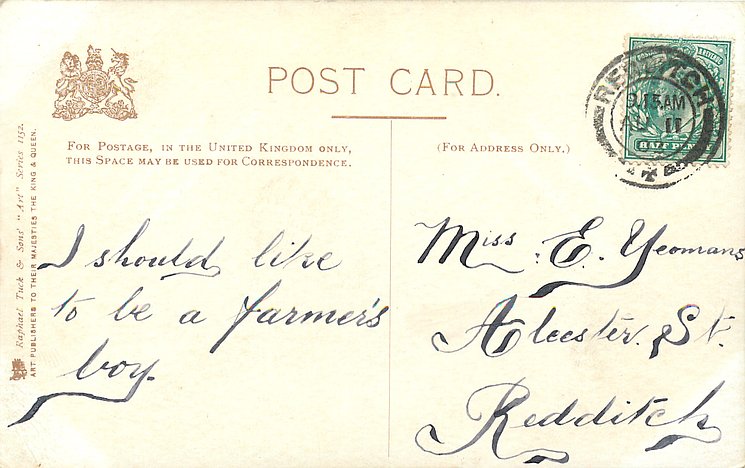 POST CARD.
FOR POSTAGE, IN THE UNITED KINGDOM ONLY,
THIS SPACE MAY BE USED FOR CORRESPONDENCE.
(FOR ADDRESS ONLY.)
Raphael Tuck & Sons' "Art" Series 1152.
ART PUBLISHERS TO THEIR MAJESTIES THE KING & QUEEN.
I should like
to be a farmer's
boy.
Miss. E. Yeomans
Alcester. St.
Redditch
REDDITCH
9.15AM
11
HALF PENNY